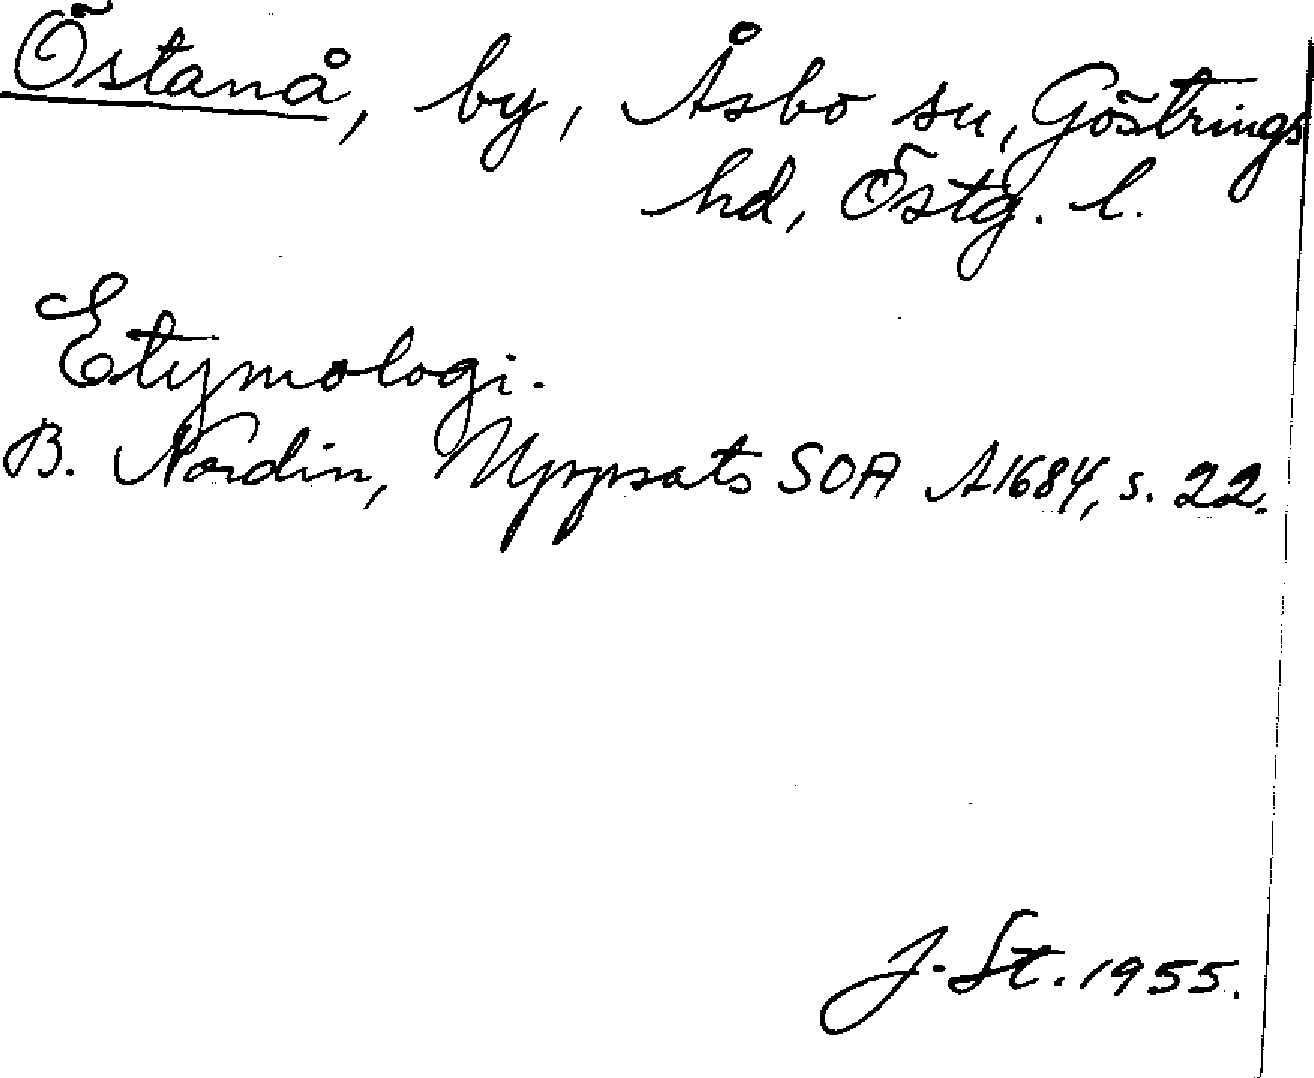 Östanå, by, Åsbo sn, Göstrings
hd, Östg. l.
Etymologi.
B. Nordin, Uppsats SOA A1684, s. 22.
J. St. 1955.